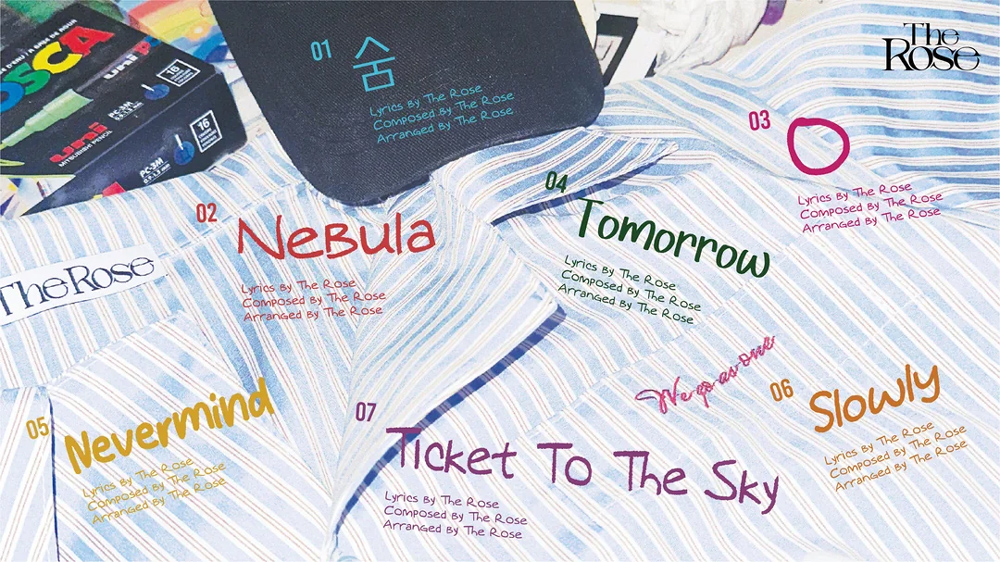 OSCA
uni
MITSUBISHI PENCIL
PC-3M
0.9-1.3 mm
16
uni
PC-3M
0.9-1.3 mm
16
The
Rose
01
숨
Lyrics By The Rose
Composed By The Rose
Arranged By The Rose
02
Nebula
Lyrics By The Rose
Composed By The Rose
Arranged By The Rose
03
O
Lyrics By The Rose
Composed By The Rose
Arranged By The Rose
04
Tomorrow
Lyrics By The Rose
Composed By The Rose
Arranged By The Rose
The Rose
05
Nevermind
Lyrics By The Rose
Composed By The Rose
Arranged By The Rose
We go as one
06
Slowly
Lyrics By The Rose
Composed By The Rose
Arranged By The Rose
07
Ticket To The Sky
Lyrics By The Rose
Composed By The Rose
Arranged By The Rose